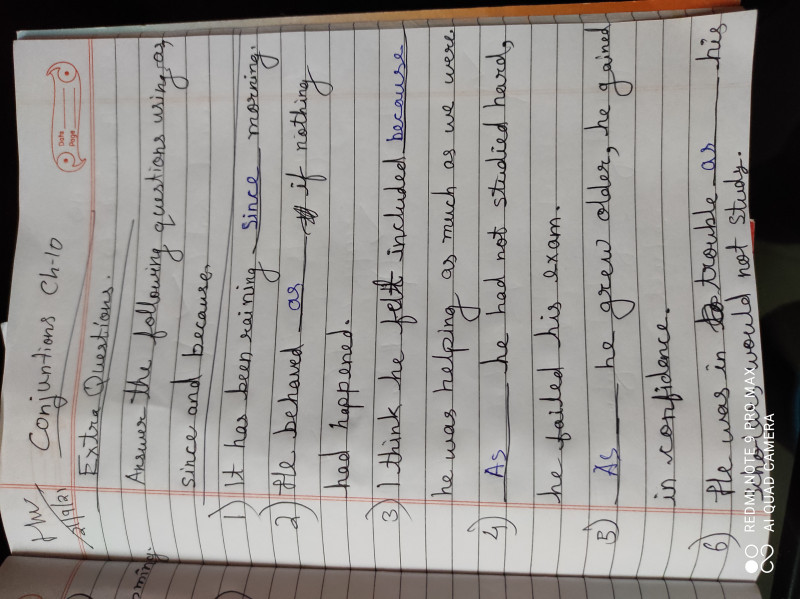 HW
21/9/21
Conjuntions Ch-10
Date
Page
Extra Questions.
Answer the following questions using as,
since and because.
1) It has been raining since morning.
2) He behaved as if nothing
had happened.
3) I think he felt included because
he was helping as much as we were.
4) As he had not studied hard,
he failed his exam.
5) As he grew older, he gained
in confidence.
6) He was in trouble as his
would not study.
oming.
REDMI NOTE 9 PRO MAX
AI QUAD CAMERA